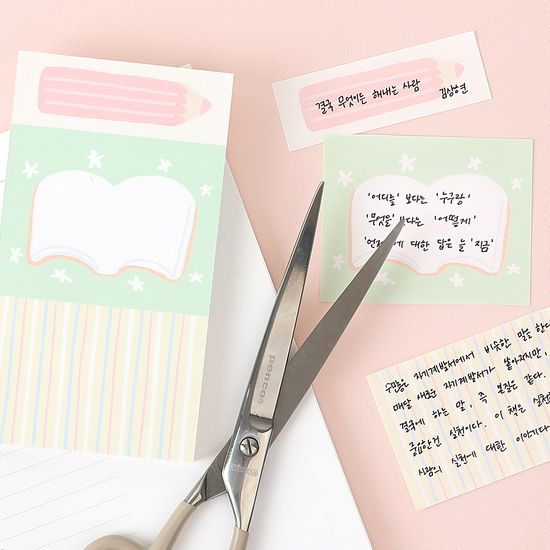 결국 무엇이든 해내는 사람 김상현
'어디를' 보다는 '누구랑'
'무엇을' 보다는 '어떻게'
'언제'에 대한 답은 늘 '지금'
수많은 자기계발서에서 비슷한 말을 한다
매달 새로운 자기계발서가 쏟아지지만,
결국에 하는 말, 즉 본질은 같다.
중요한건 실천이다. 이 책은 실천
사람의 실천에 대한 이야기다
penco